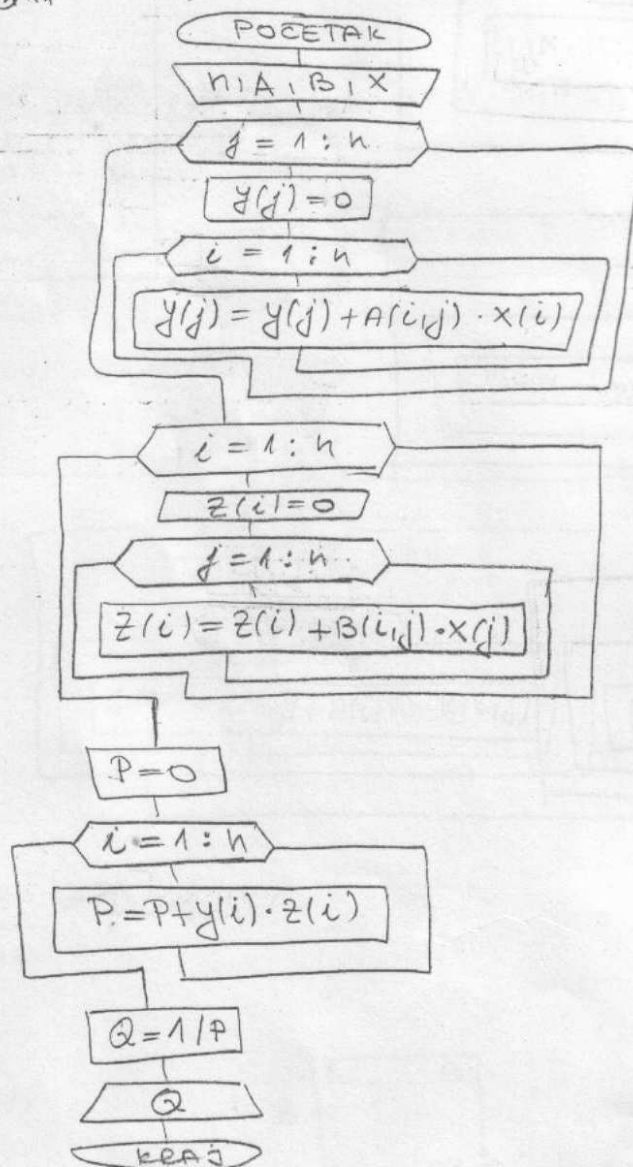 POCETAK
n, A, B, X
j = 1 : n
y(j) = 0
i = 1 : n
y(j) = y(j) + A(i,j) · X(i)
i = 1 : n
Z(i) = 0
j = 1 : n
Z(i) = Z(i) + B(i,j) · X(j)
P = 0
i = 1 : n
P = P + y(i) · Z(i)
Q = 1/P
Q
KRAJ